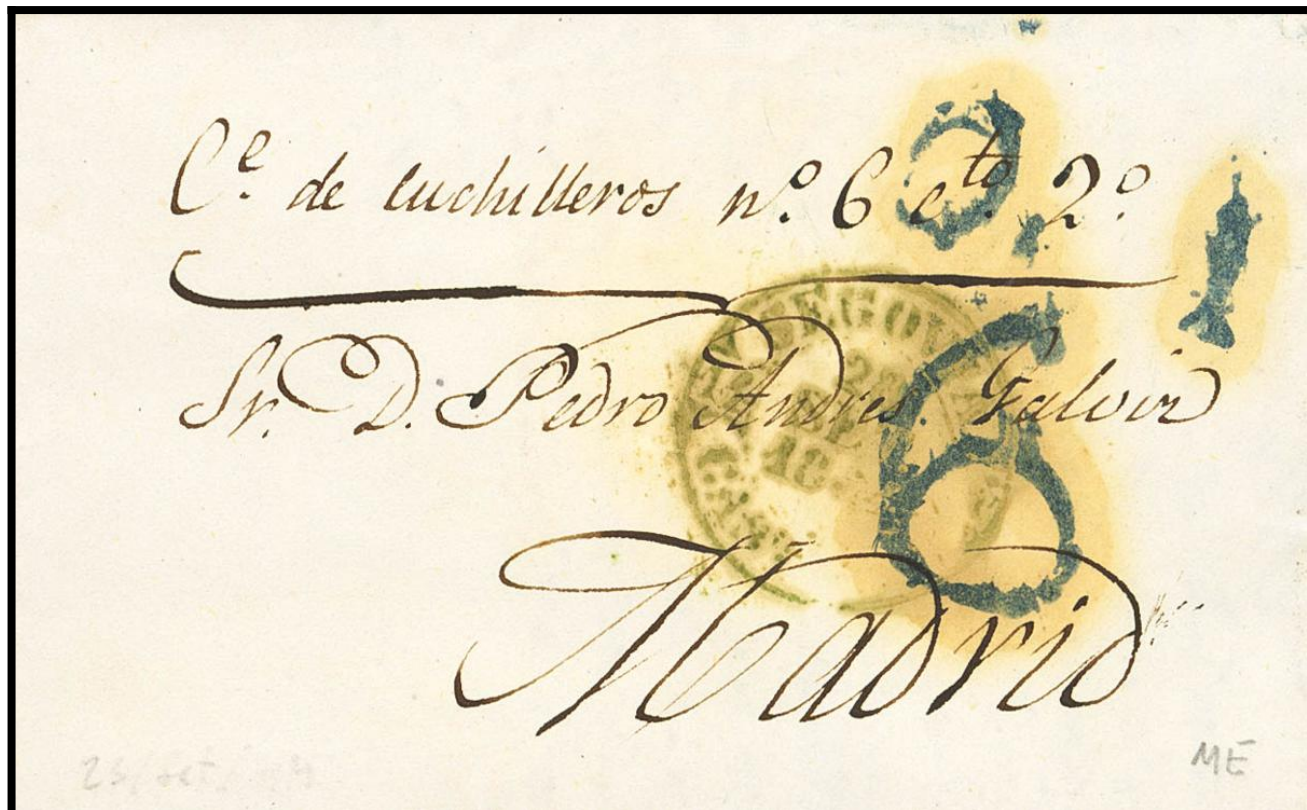 C.e de cuchilleros n.o 6 c.to 2.o
Sr. D. Pedro Andres Galvin
Madrid
ME